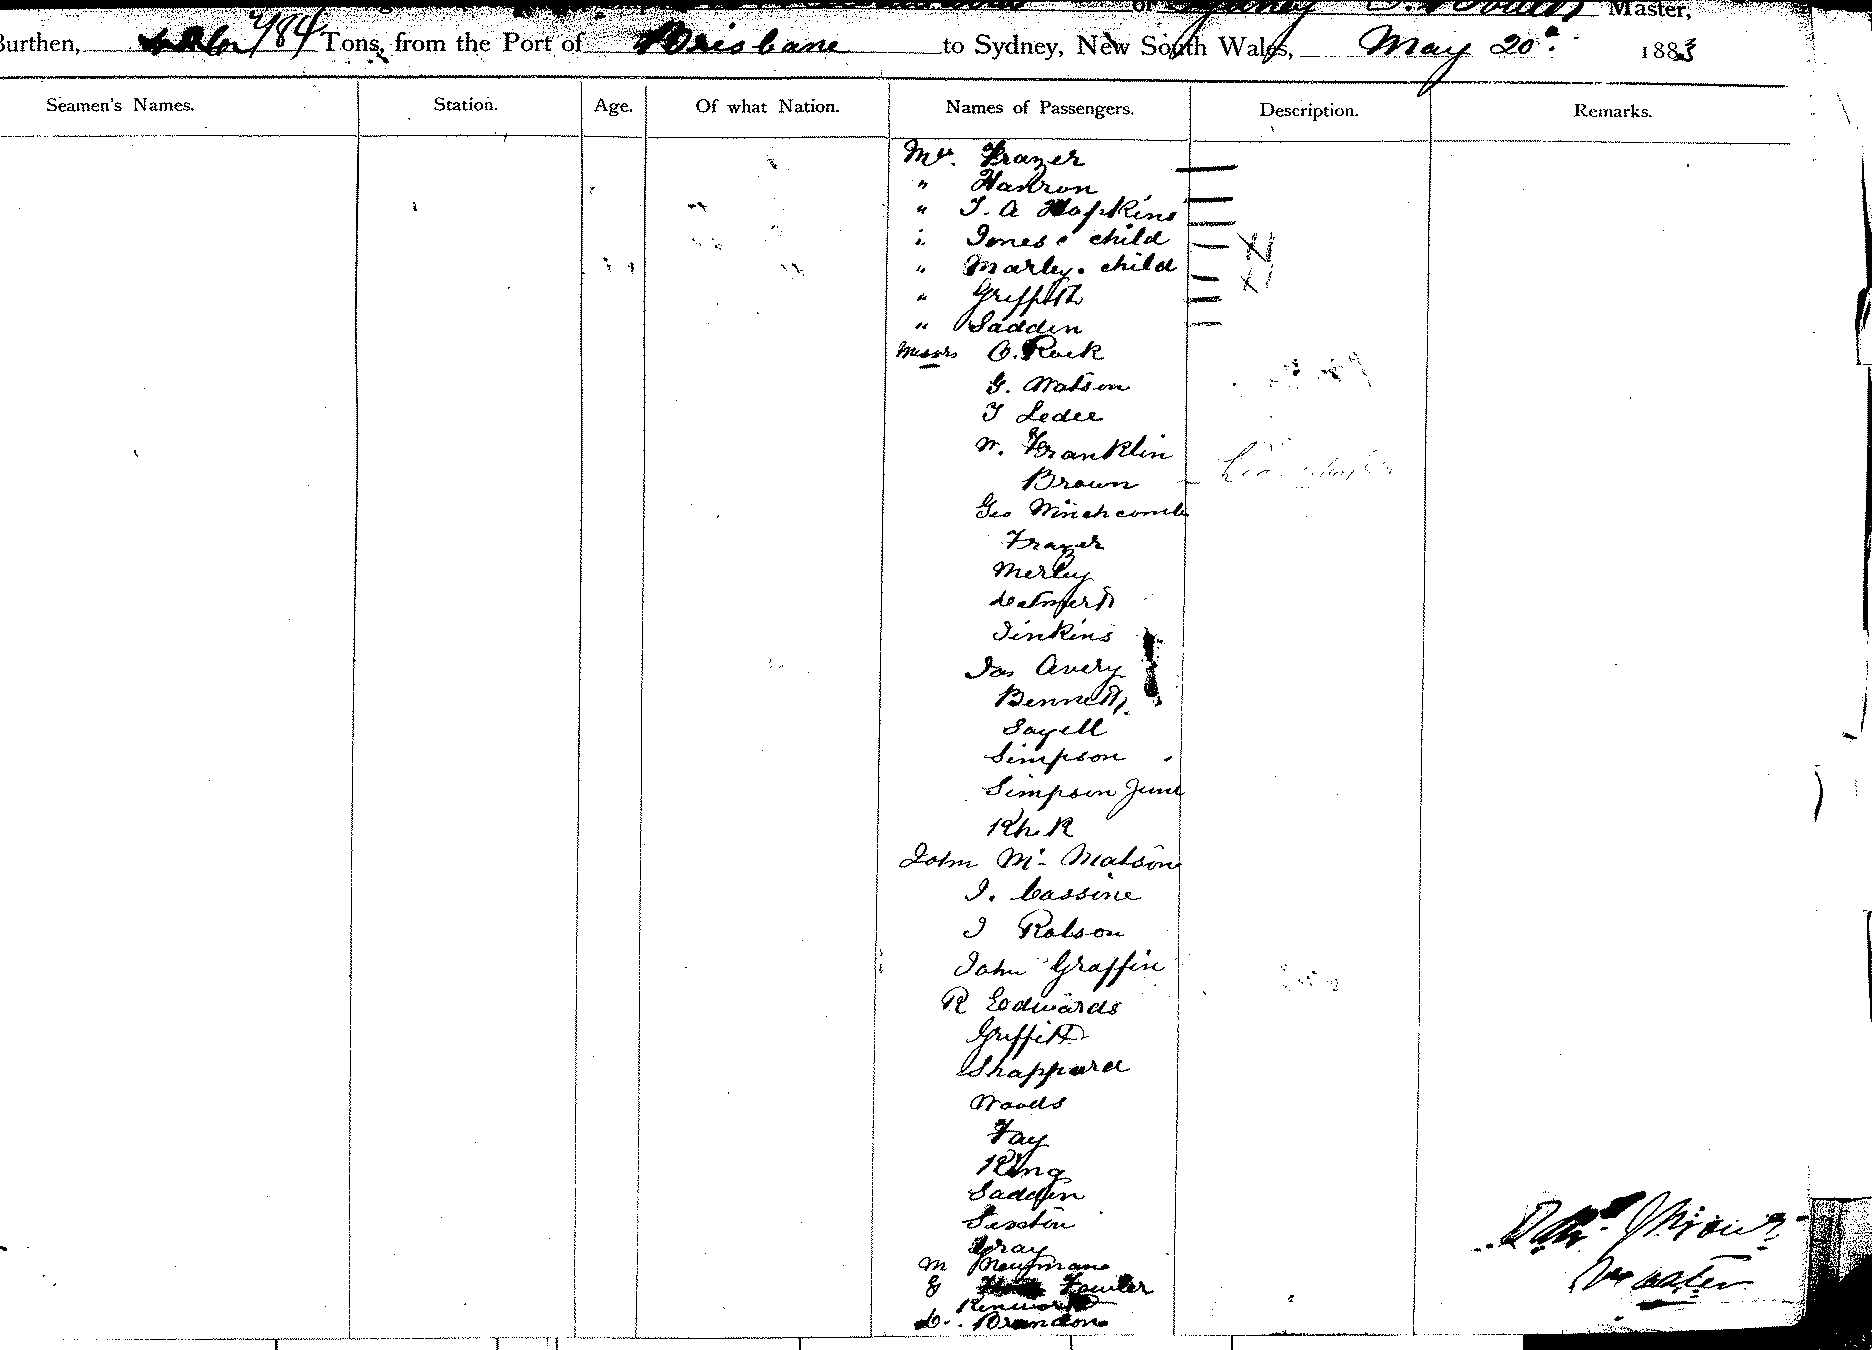 of Sydney Master,
Burthen, 484 Tons, from the Port of Brisbane to Sydney, New South Wales, May 20th 1883
Seamen's Names. Station. Age. Of what Nation. Names of Passengers. Description. Remarks.
Mrs. Frazer
" Hanron
" T. A Hopkins
" Jones & child
" Marley & child
" Griffith
" Sadden
Messrs C. Rock
G. Watson
T Ledee
W. Franklin
Brown
Geo Winchcomb
Frazer
Merley
Jinkins
Jas Avery
Bennett
Sayell
Simpson
Simpson Junr
John Mc Matson
J. Cassine
J Robson
John Graffin
R Edwards
Griffith
Shappard
Woods
Fay
King
Sadden
Sexton
Gray
M
G Fowler
Kenworth
Brandon
Master